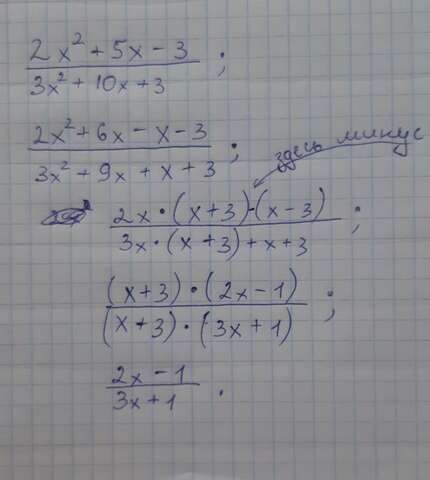 (2x² + 5x − 3) / (3x² + 10x + 3) ;
(2x² + 6x − x − 3) / (3x² + 9x + x + 3) ;
здесь минус
(2x · (x + 3) − (x − 3)) / (3x · (x + 3) + x + 3) ;
((x + 3) · (2x − 1)) / ((x + 3) · (3x + 1)) ;
(2x − 1) / (3x + 1) .